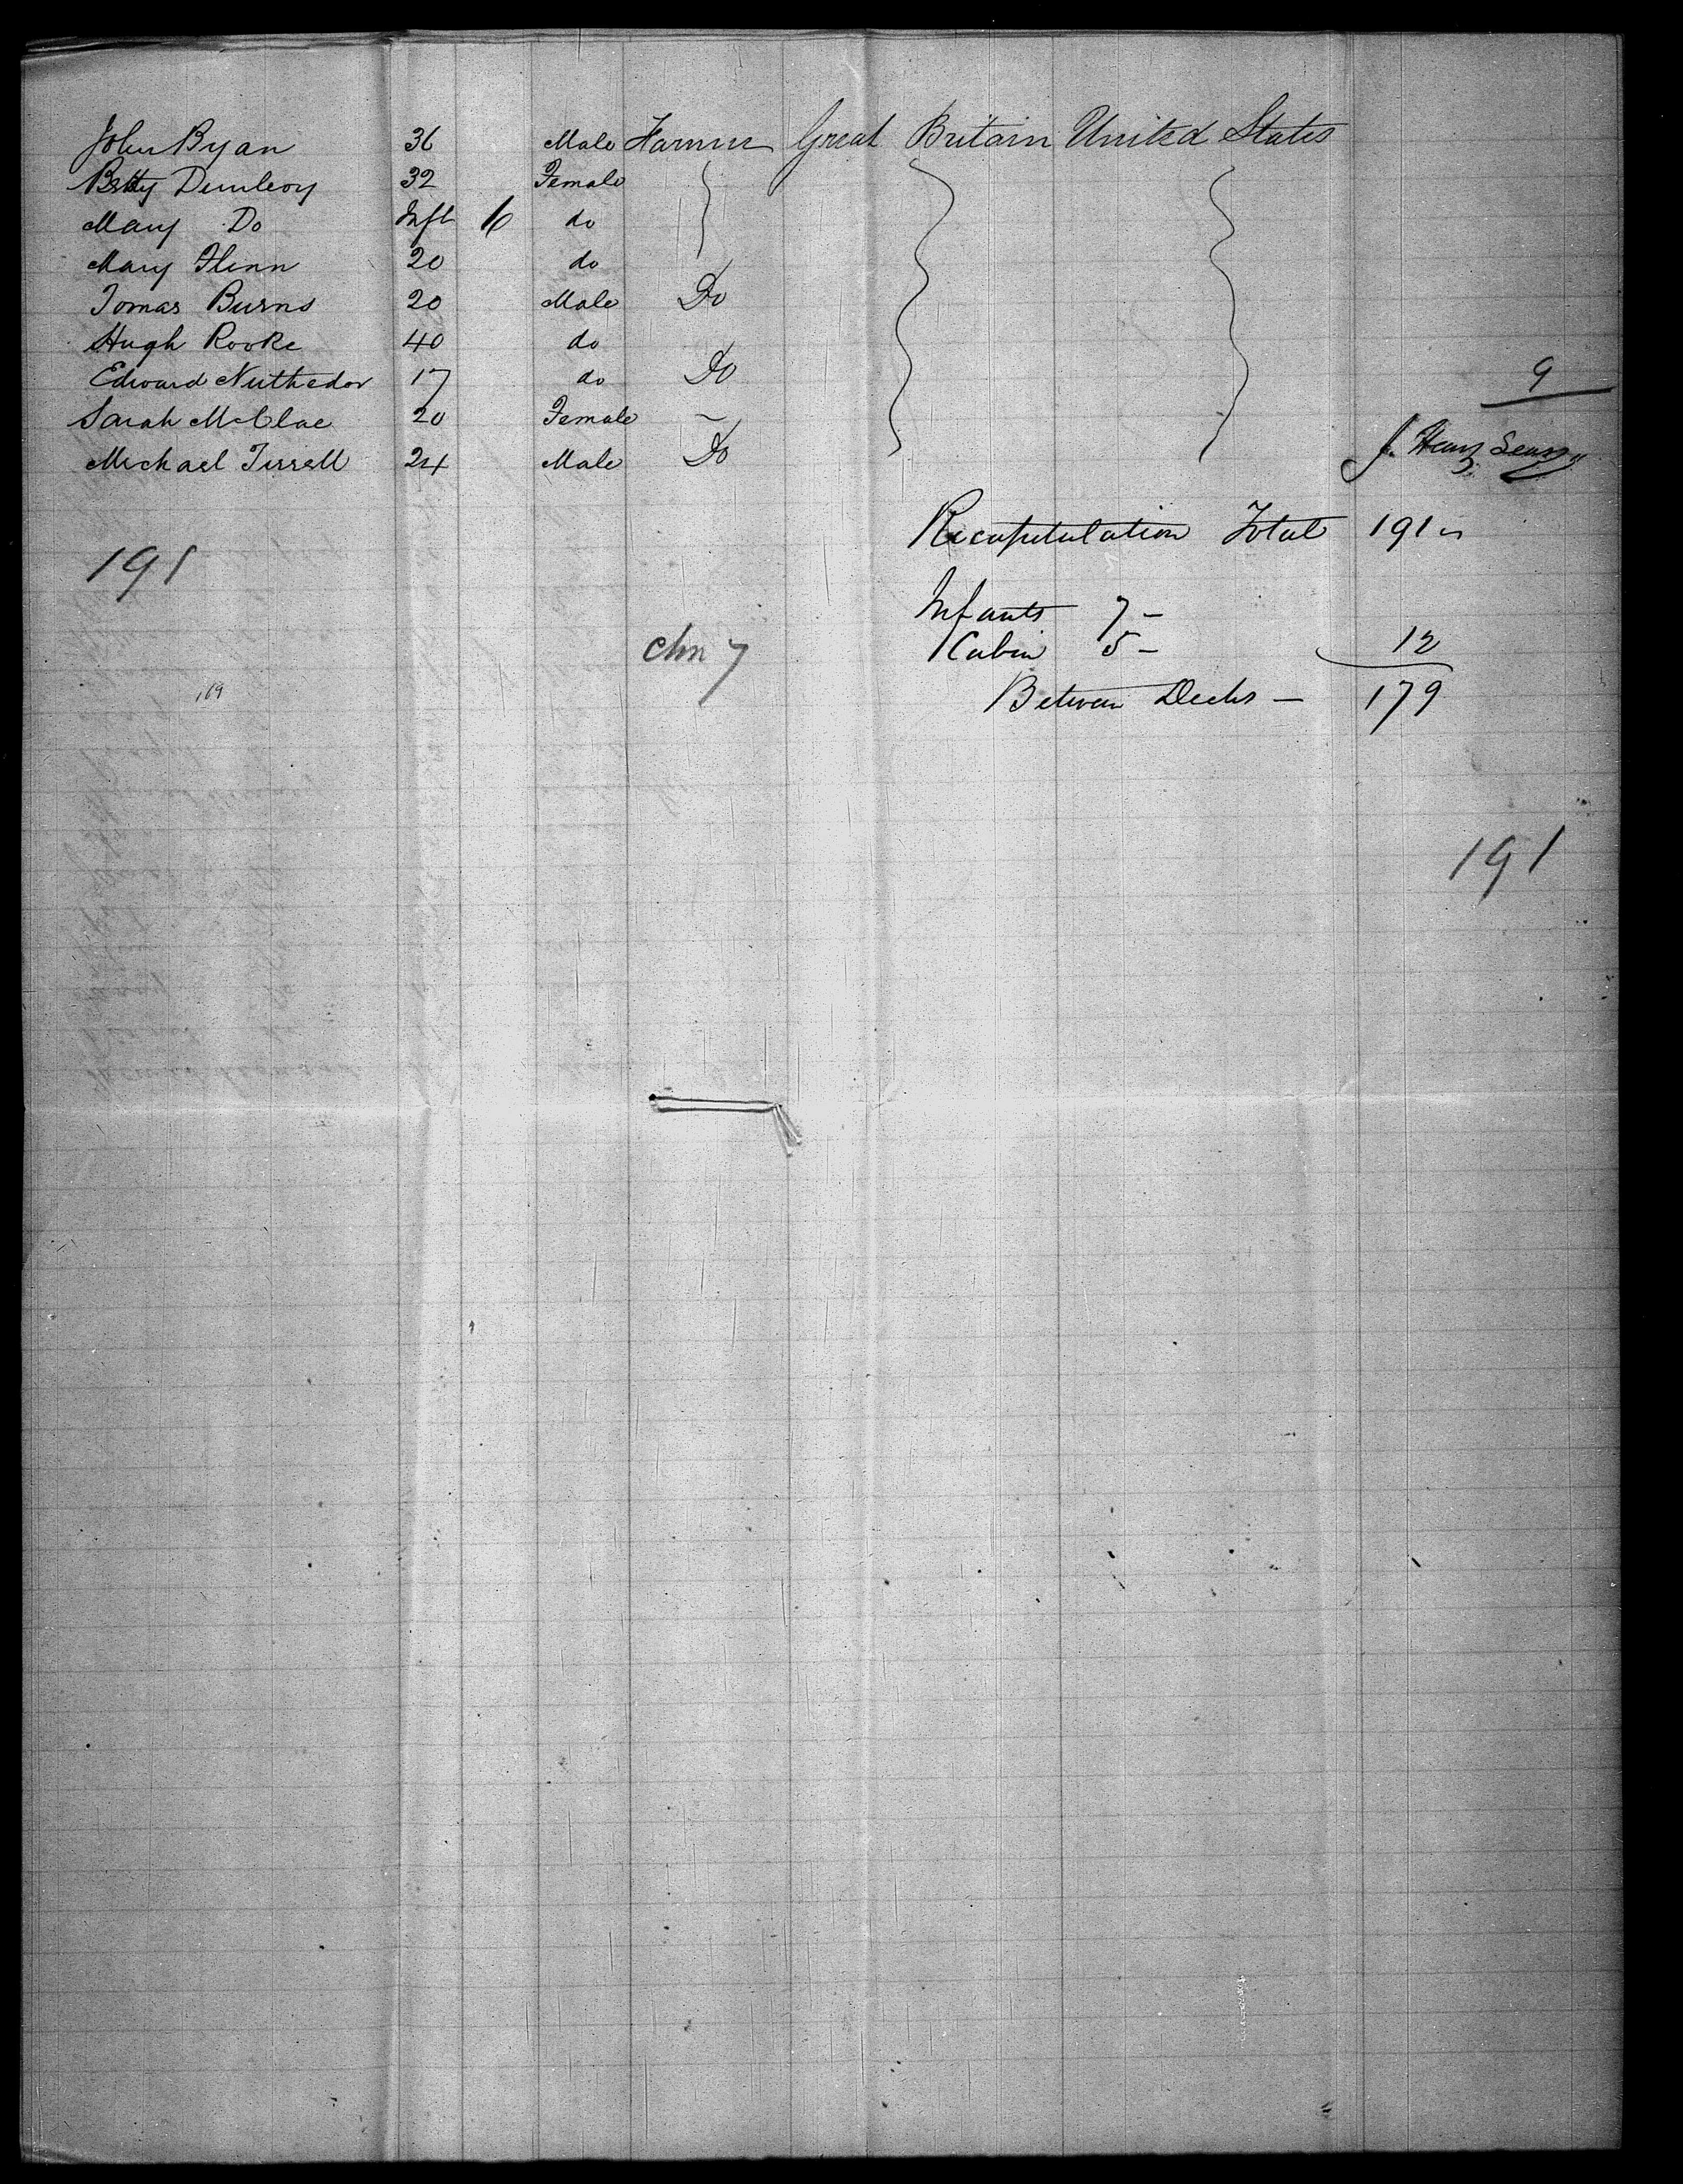 John Ryan 36 Male Farmer Great Britain United States
Betty Dunlevy 32 Female
Mary Do Inft 6 do
Mary Flinn 20 do
Tomas Burns 20 Male Do
Hugh Rooke 40 do
Edward 17 do Do 9
Sarah McClae 20 Female –
Michael Tirrell 24 Male Do
J. Henry
Recapitulation Total 191
191
Infants 7 –
Cabin 5 – 12
Chn 7
Between Decks – 179
169
191